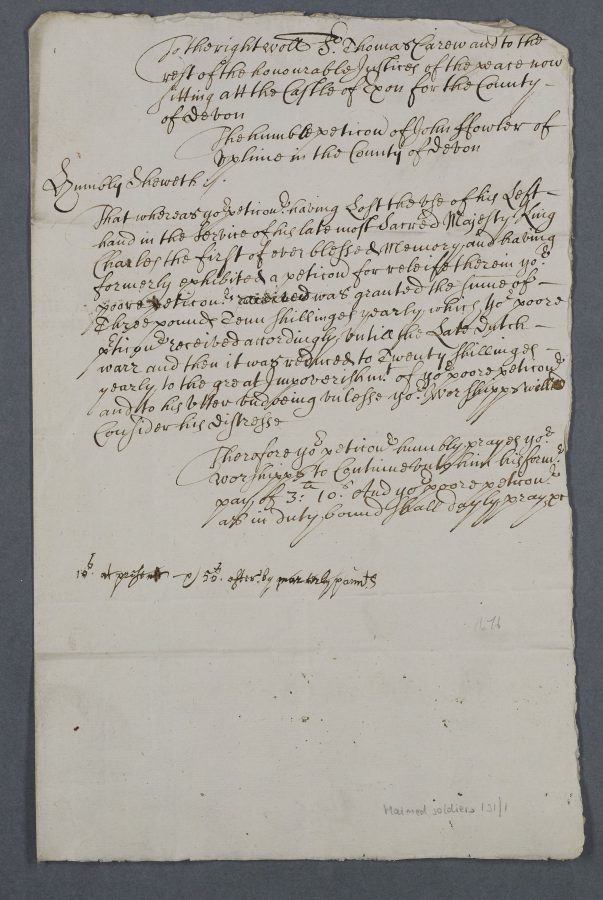 To the right wo.ll Sr. Thomas Carew and to the
rest of the honourable Justices of the peace now
sitting att the Castle of Exon for the County
of Devon
The humble peticon of John Ffowler of
Uplime in the County of Devon
Humbly Sheweth
That whereas yor peticonr. having Lost the use of his Left
hand in the Service of his late most Sacred Majesty King
Charles the first of ever blessed Memory and having
formerly exhibited a peticon for releife therein yor.
poore peticonr. was granted the sume of
Three pound Tenn shillinges yearly which yor poore
peticonr received accordingly untill the Late Dutch
warr and then it was reduced to Twenty shillinges
yearly to the great Impoverishmt. of yor poore peticonr
and to his utter undoeing unlesse yor. Worshipps will
Consider his distresse
Therefore yor peticonr humbly prayes yor.
Worshipps to Continue unto him his formr.
pay of 3li: 10s. And yor poore peticonr.
as in duty bound shall dayly pray &c
10s. at present & 50s. after by quarterly paimts
1676
Maimed soldiers 131/1